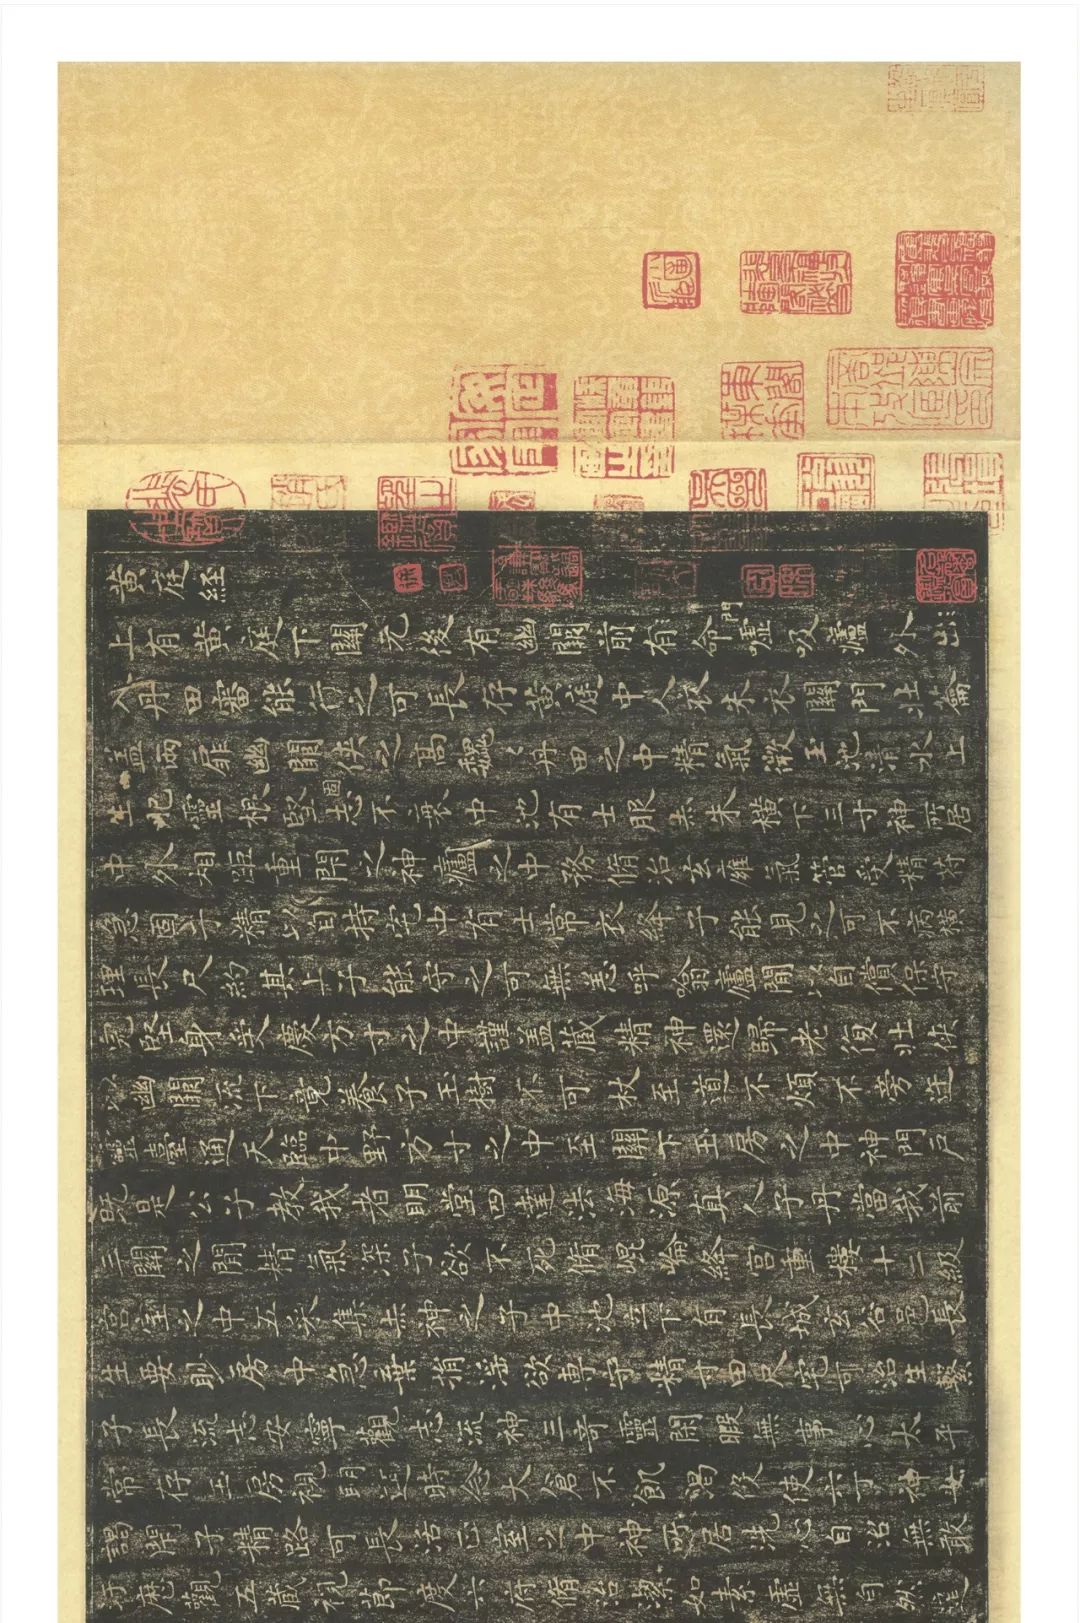 黄庭経
上有黄庭下關元後有幽闕前有命門噓吸廬外出
入丹田審能行之可長存黄庭中人衣朱衣關門壯籥
蓋兩扉幽闕俠之高魏々丹田之中精氣微玉池清水上
生肥靈根堅固志不衰中池有士服赤朱橫下三寸神所居
中外相距重閉之神廬之中務脩治玄雍氣管受精符
急固子精以自持宅中有士常衣絳子能見之可不病橫
理長尺約其上子能守之可無恙呼噏廬間以自償保守
完堅身受慶方寸之中謹蓋藏精神還歸老復壯俠
以幽闕流下竟養子玉樹不可杖至道不煩不旁迕
靈臺通天臨中野方寸之中至關下玉房之中神門戶
既是公子教我者明堂四達法海源真人子丹當我前
三關之間精氣深子欲不死脩崐崘絳宮重樓十二級
宮室之中五采集赤神之子中池立下有長城玄谷邑長
生要眇房中急棄捐淫欲專守精寸田尺宅可治生繫
子長流志安寧觀志流神三奇靈閑暇無事心太平
常存玉房視明達時念大倉不飢渴役使六丁神女
謁閉子精路可長活正室之中神所居洗心自治無敢
汙歷觀五藏視節度六府脩治潔如素虛無自然道